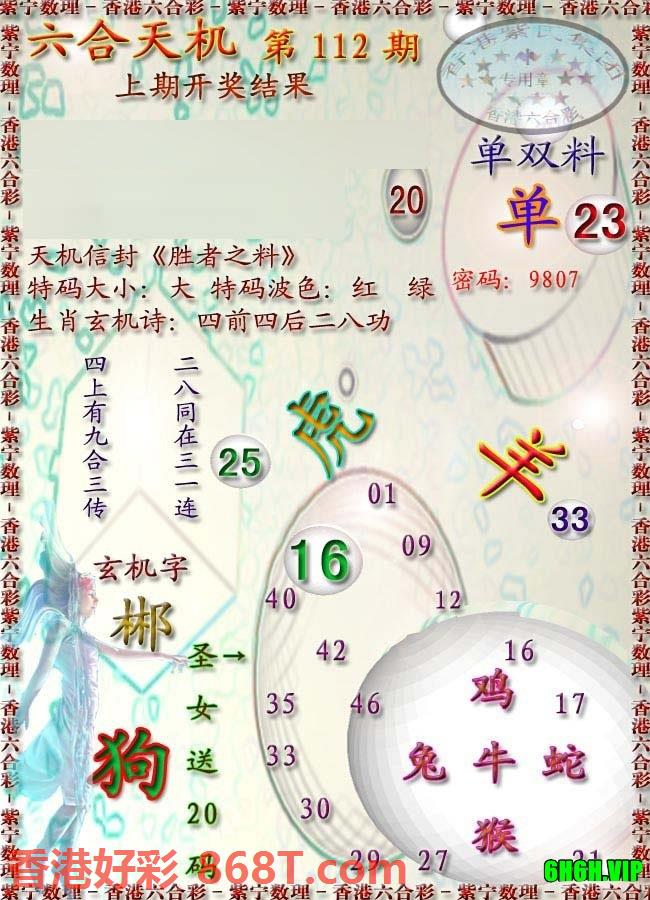 紫宁数理－香港六合彩－紫宁数理－香港六合彩－紫宁数理－香港六合彩－紫宁数理
六合天机 第 112 期
上期开奖结果
香港紫宁集团
专用章
香港六合彩
单双料
单 23
20
天机信封《胜者之料》
特码大小：大 特码波色：红 绿
密码：9807
生肖玄机诗：四前四后二八功
四上有九合三传
二八同在三一连
25
虎
羊
33
01
16
09
40
12
玄机字
郴
圣女送20码
→
42
16
鸡
35
46
17
狗
33
兔 牛 蛇
30
猴
29
27
21
香港好彩 868T.com
6H6H.VIP
紫宁数理－香港六合彩－紫宁数理－香港六合彩－紫宁数理－香港六合彩－紫宁数理